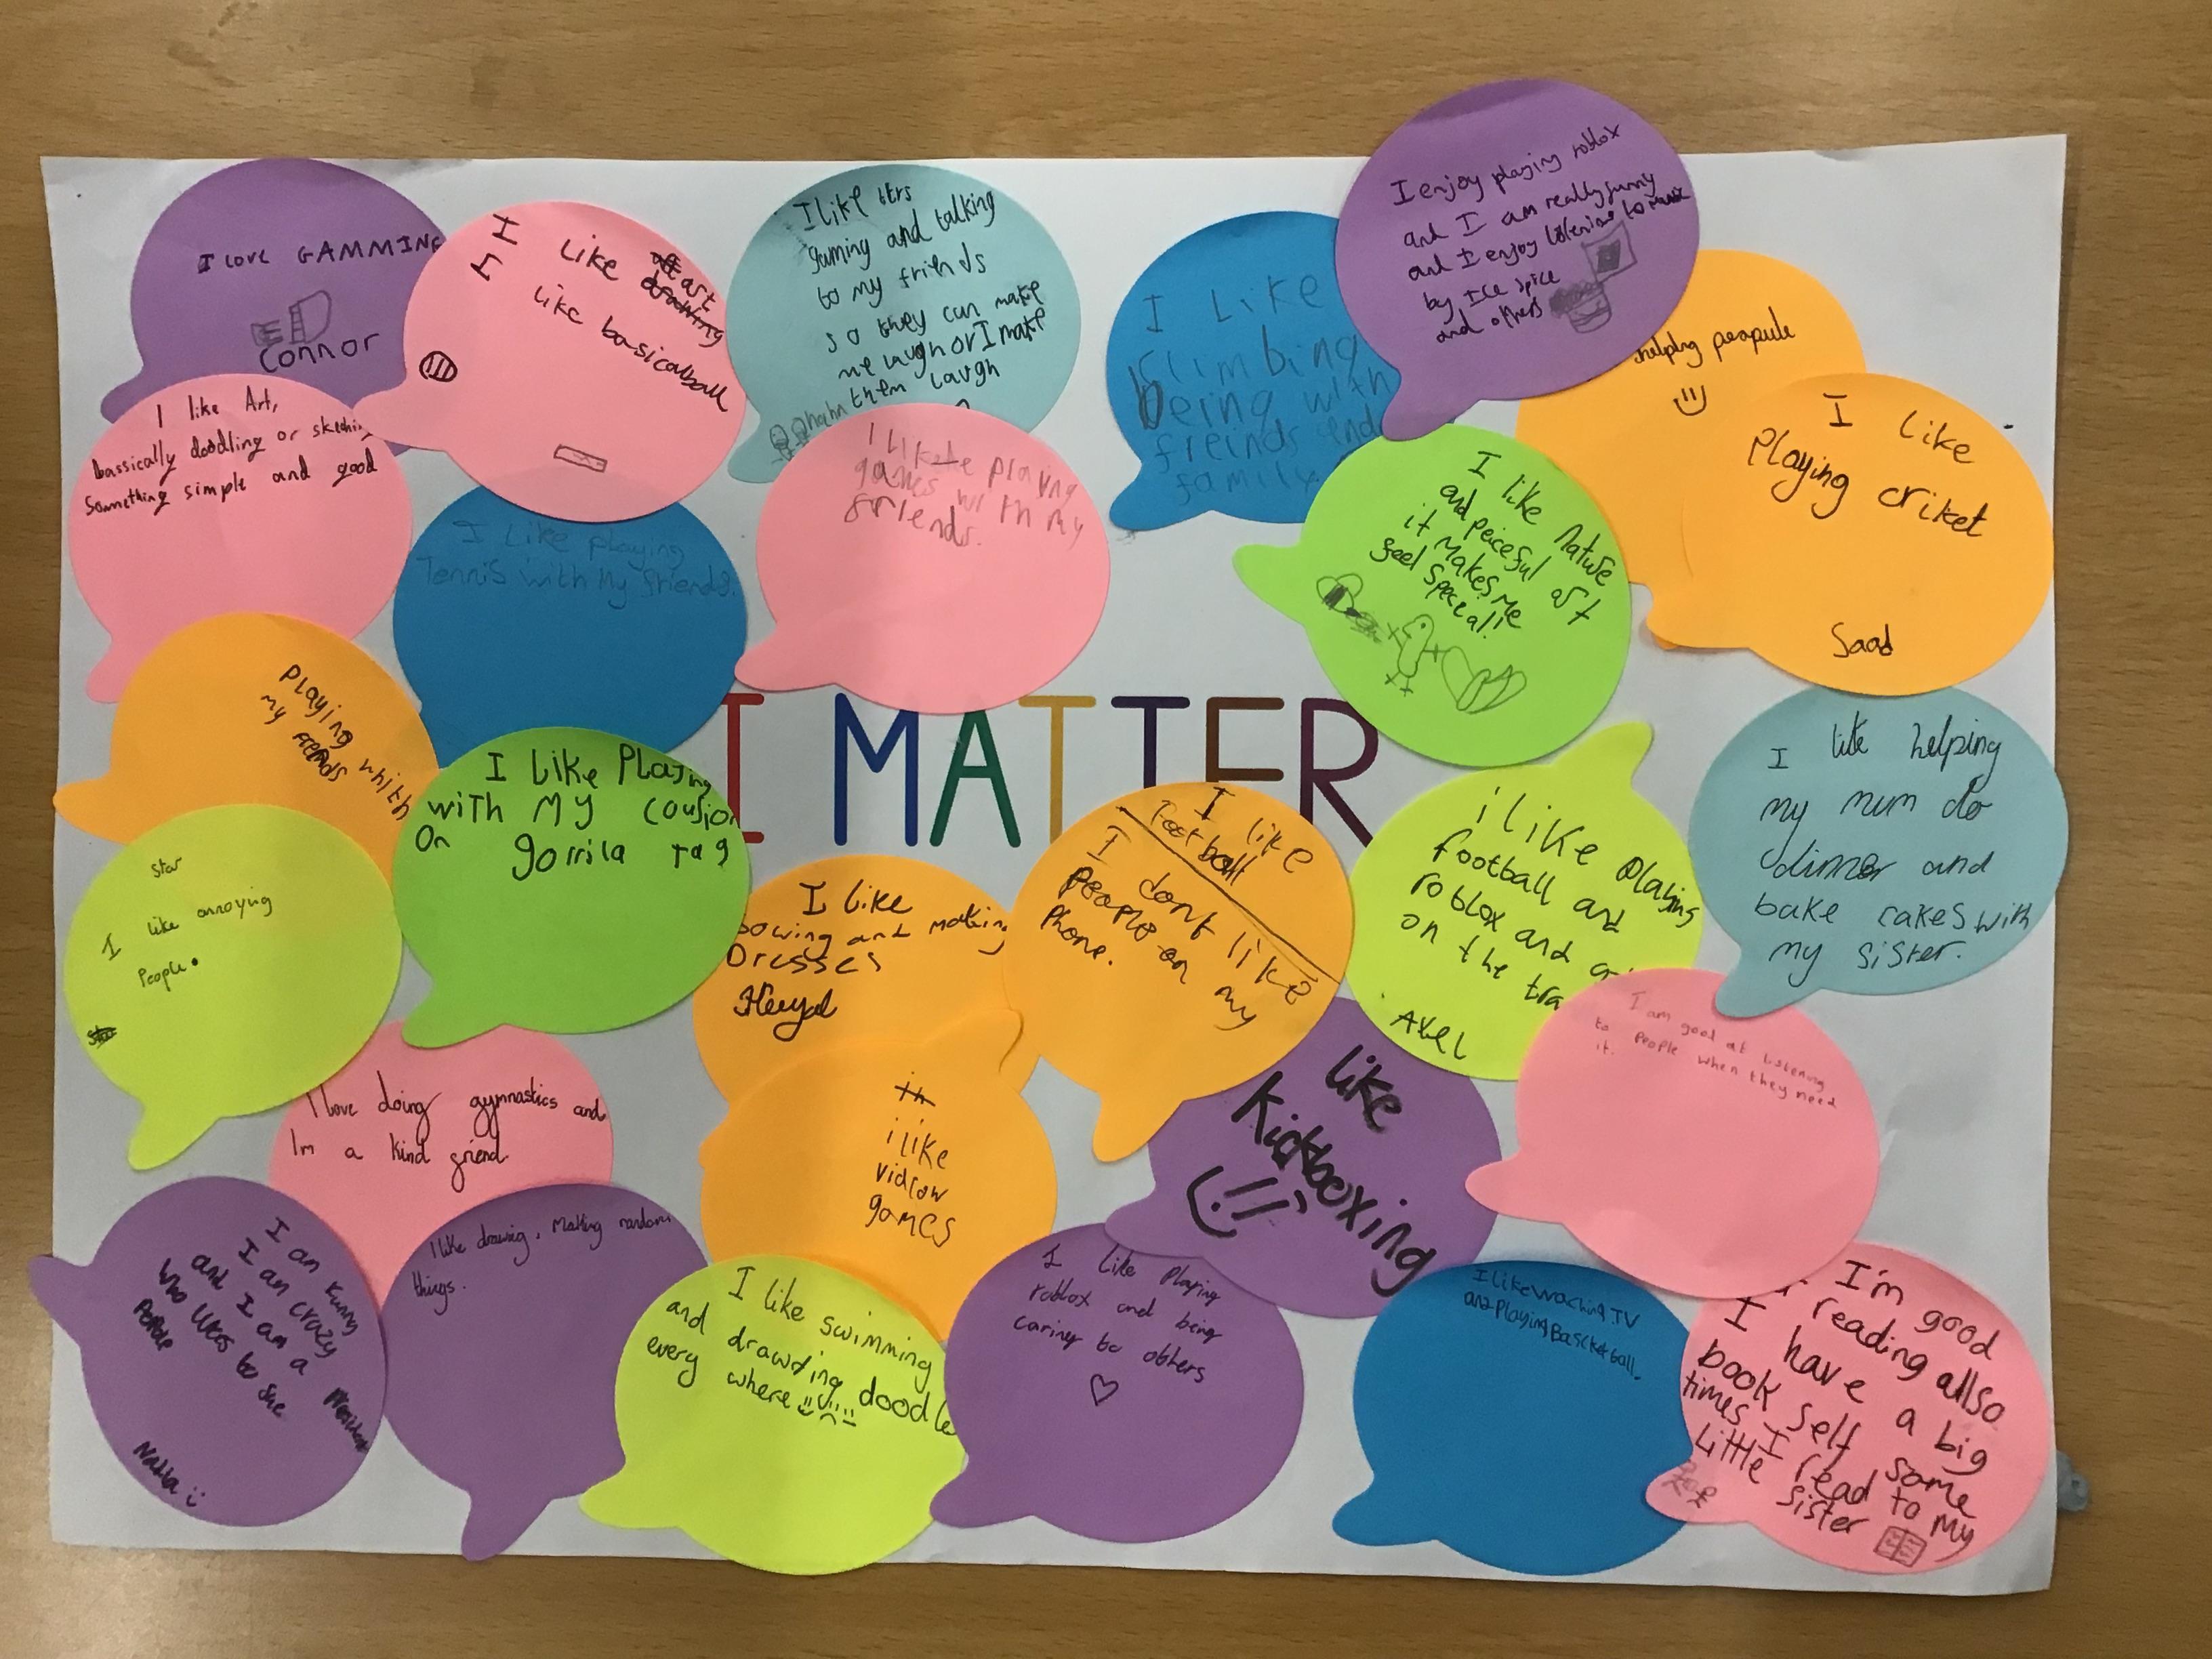 I LOVE GAMMING
connor
I like art
I like basicalball
I like bts
gaming and talking
to my friends
so they can make
me laugh or I make
them laugh
hahn
I Like
climbing
being with
freinds and
family.
I enjoy playing roblox
and I am really funny
and I enjoy listening to music
by Ice spice
and others
helping peapule
I like
Playing criket
Saad
I like Art,
bassically doodling or
Something simple and good
I Like playing
Tennis with My friends.
I like playing
games with my
friends.
I like Nature
and peiceful art
it Makes Me
feel special!
Playing whith
my
I MATTER
I like Playing
with My cousion
On gorrila tag
I like
football
I dont like
people on my
Phone.
i like Playing
football and
roblox and
on the tra
AXEL
I like helping
my mum do
dinner and
bake cakes with
my sister.
star
I like annoying
People.
I like
sowing and making
Dresses
I love doing gymnastics and
Im a kind friend.
i like
vidiow
games
like
Kickboxing
I am good at listening
to people when they need
it.
I am funny
I am crazy
and I am a
who likes to sue
People
I like drawing, Making random
things.
I like swimming
and drawding doodles
every where
I like Playing
roblox and being
caring to others
I like waching TV
and Playing Bascketball.
I'm good
reading allso
I have a big
book self some
times I read to My
Little sister